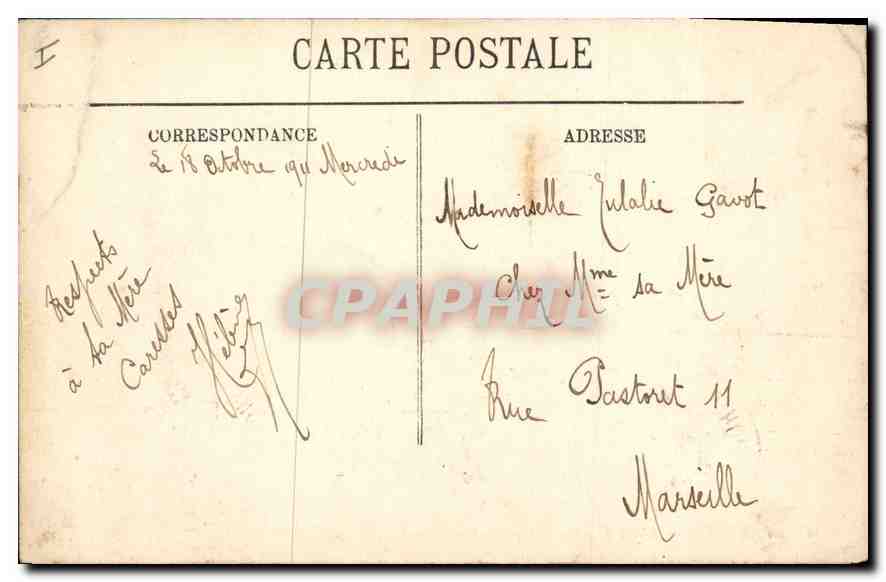 I
CARTE POSTALE
CORRESPONDANCE
Le 18 Octobre 1911 Mercredi
Respects
à ta Mère
Caresses
ADRESSE
Mademoiselle Eulalie Gavot
Chez Mme sa Mère
Rue Pastoret 11
Marseille
CPAPHIL